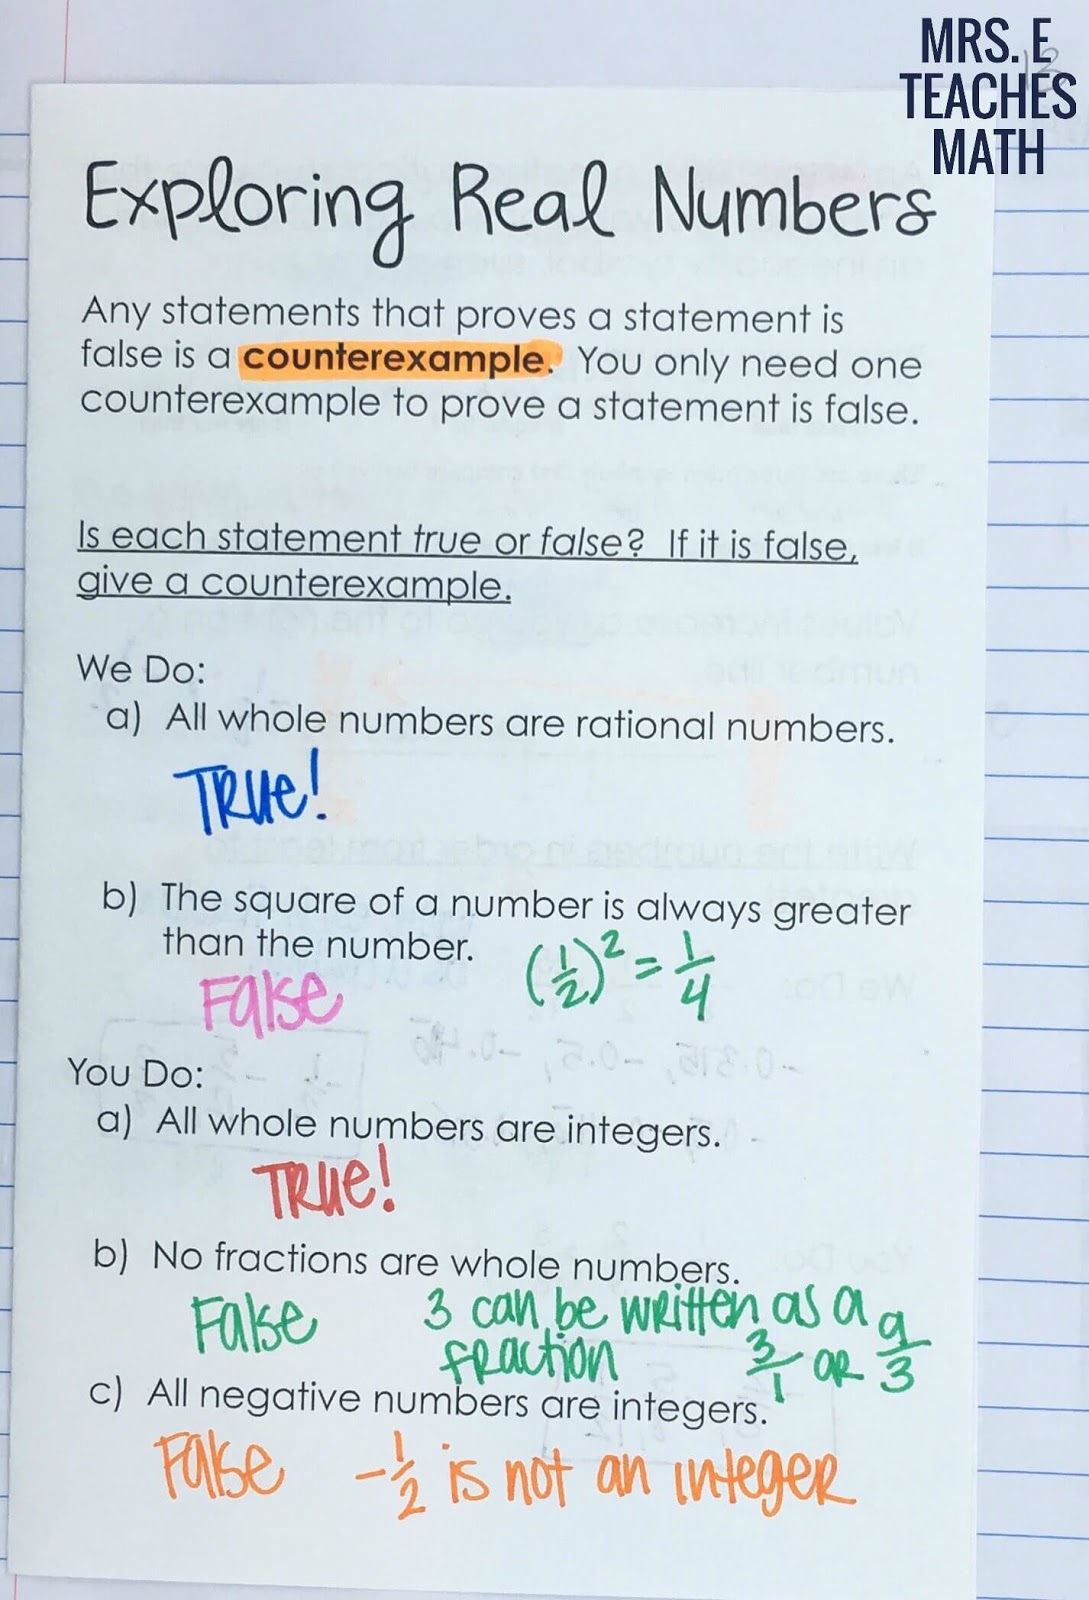 MRS. E
TEACHES
MATH
Exploring Real Numbers
Any statements that proves a statement is
false is a counterexample. You only need one
counterexample to prove a statement is false.
Is each statement true or false? If it is false,
give a counterexample.
We Do:
a) All whole numbers are rational numbers.
TRUe!
b) The square of a number is always greater
than the number.
(1/2)² = 1/4
False
You Do:
a) All whole numbers are integers.
TRUe!
b) No fractions are whole numbers.
False 3 can be written as a
fraction 3/1 OR 9/3
c) All negative numbers are integers.
False -1/2 is not an integer